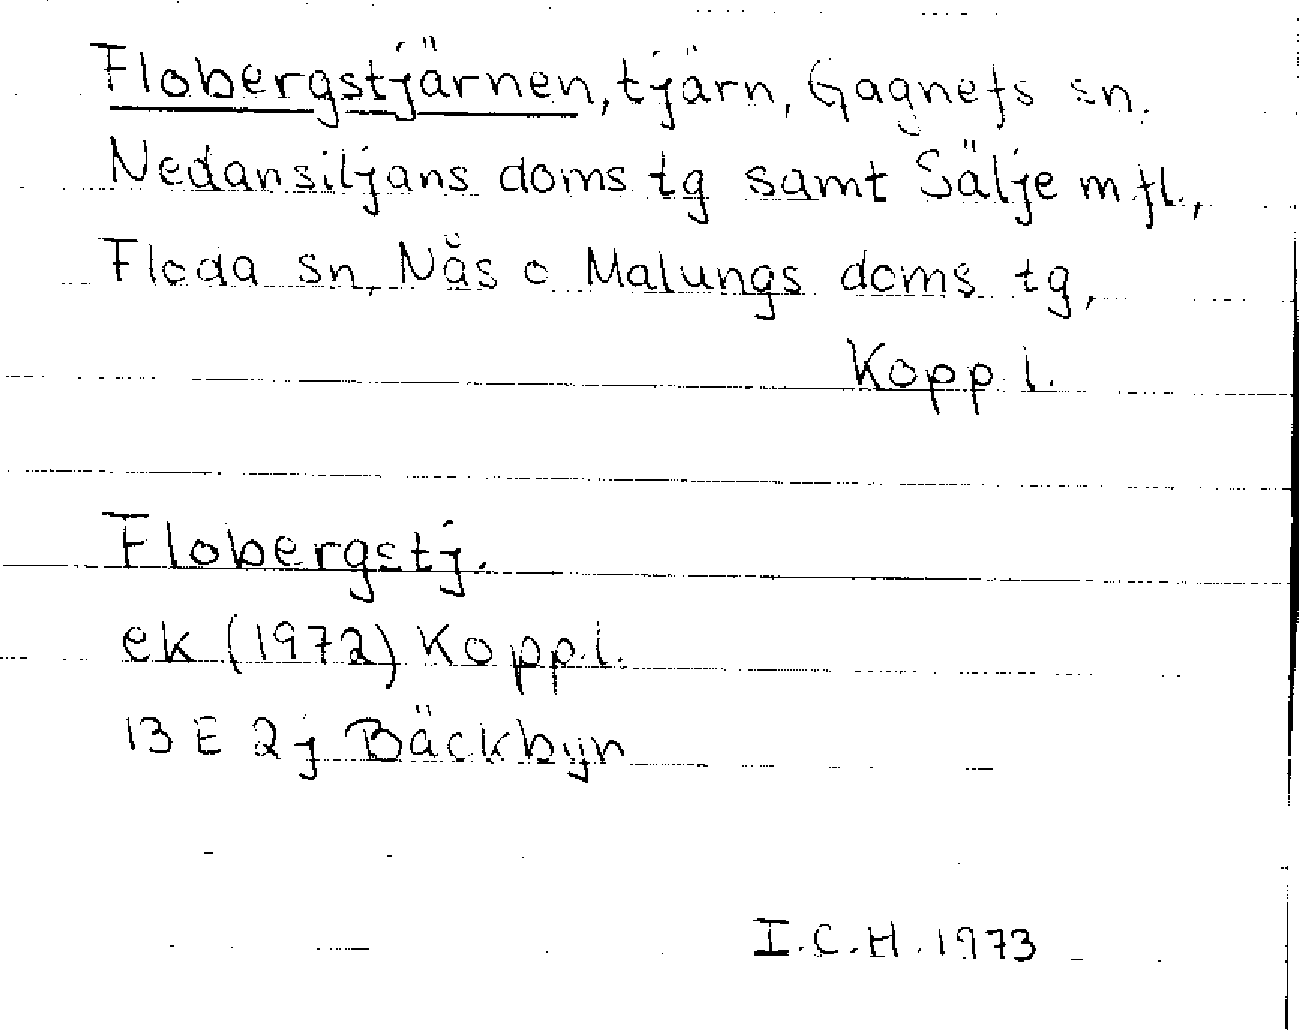 Flobergstjärnen, tjärn, Gagnefs sn.
Nedansiljans doms tg samt Sälje m fl.,
Floda sn, Nås o Malungs doms tg,
Kopp. l.
Flobergstj.
ek (1972) Kopp. l.
13 E 2 j Bäckbyn
I.C.H. 1973